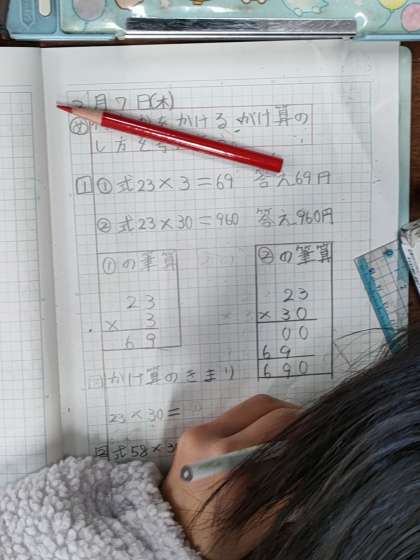 月7日(木)
をかけるかけ算の
し方を
1 ①式23×3=69 答え69円
②式23×30=960 答え960円
①の筆算
23
× 3
69
②の筆算
23
×30
00
69
690
かけ算のきまり
23×30=
式58×3